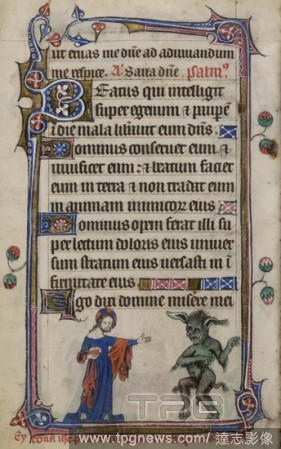 ut eruas me dñe ad adiuuandum
me respice. A. Sana dñe. psalm?
Beatus qui intelligit
super egenum & pauperē
ī die mala liberabit eum dñs.
Dominus conseruet eum &
uiuificet eum: & beatum faciet
eum in terra & non tradat eum
in animam inimicorum eius
Dominus opem ferat illi su
per lectum doloris eius uniuer
sum stratum eius uersasti in ī
firmitate eius
Ego dixi domine miserere mei
TPG
www.tpgnews.com/ 達志影像